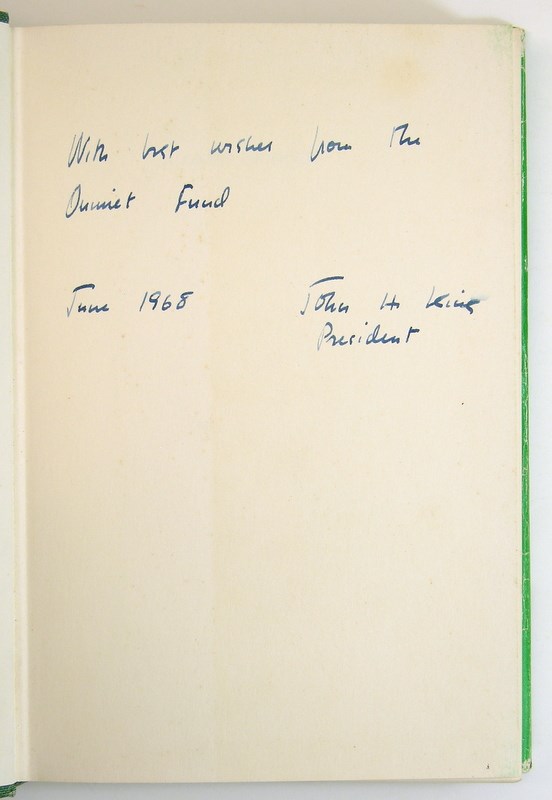 With best wishes from the
Fund
June 1968
John H
President